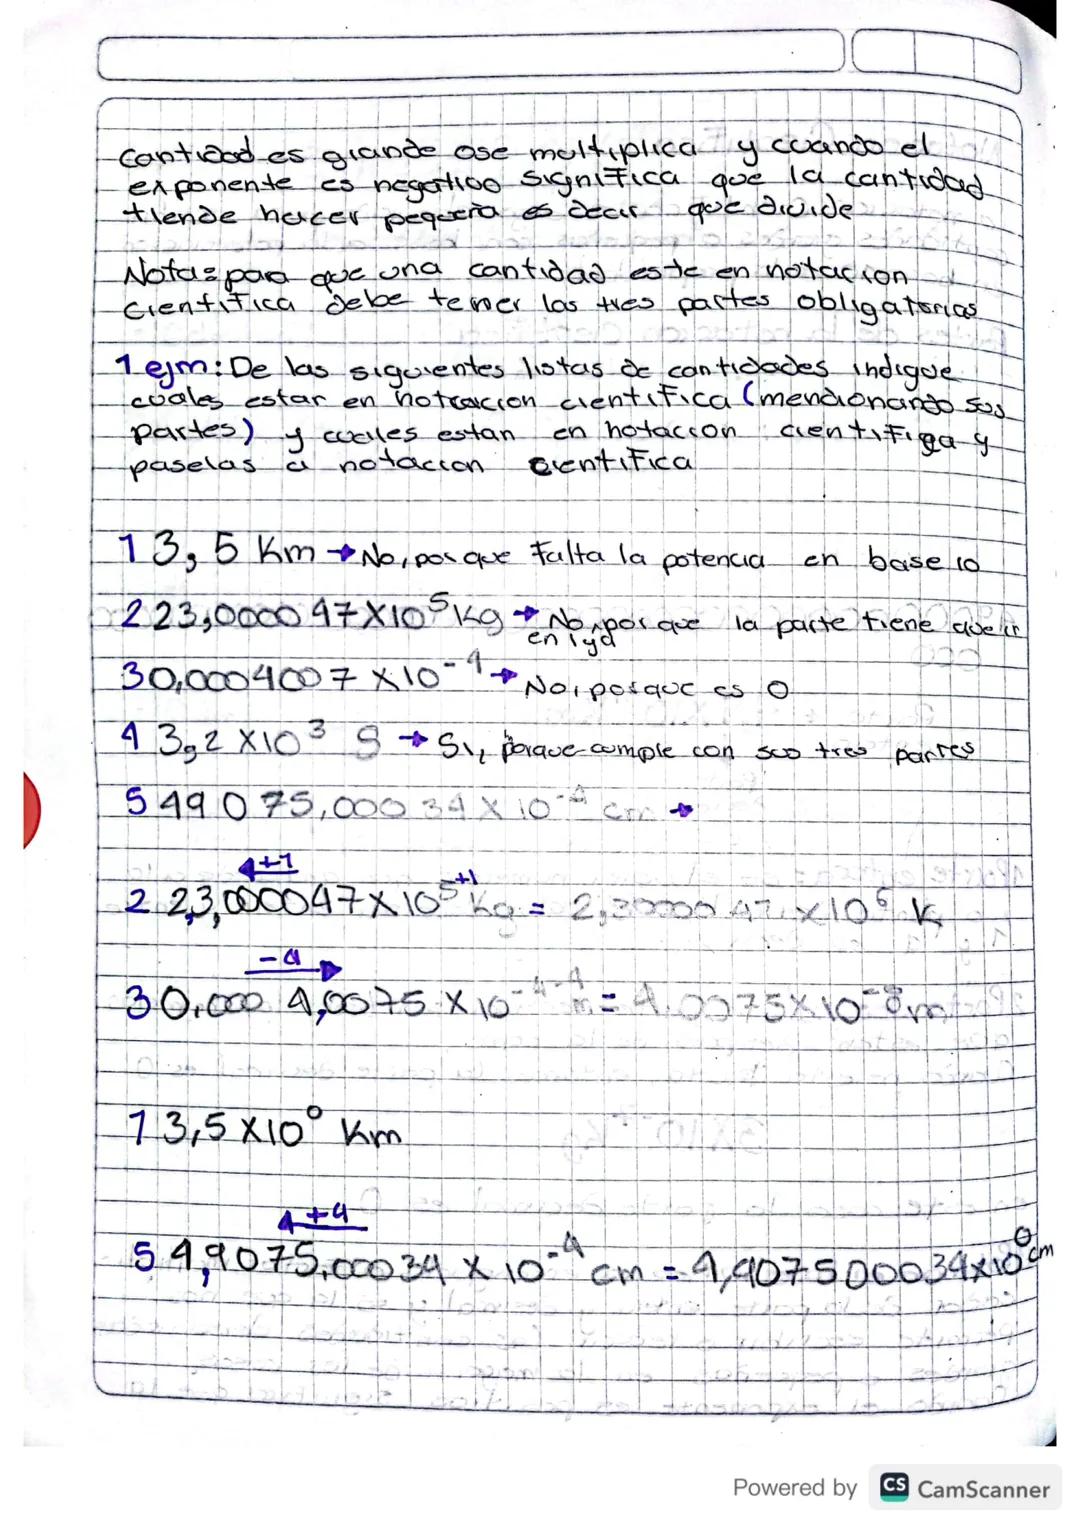 cantidad es grande ose multiplica y cuando el
exponente es negativo significa que la cantidad
tiende hacer pequeña es decir que divide
Nota: para que una cantidad este en notacion
cientifica debe tener las tres partes obligatorias
1 ejm: De las siguientes listas de cantidades indique
cuales estar en notacion cientifica (mencionando sus
partes) y cuales estan en notacion cientifiga y
paselas a notacion cientifica
1 3,5 Km → No, por que falta la potencia en base 10
2 23,0000 47 X10⁵ Kg → No, por que la parte tiene que ir
en 1 y 9
3 0,0004007 X10⁻⁴ → No, porque es 0
4 3,2 X10³ S → Si, porque cumple con sus tres partes
5 49 0 75,000 34 X 10⁻⁴ cm →
←+1
2 2,3,000047 X 10⁵⁺¹ Kg = 2,30000 47 X10⁶ K
-4→
3 0,000 4,0075 X 10⁻⁴⁻⁴ m = 4.0075X10⁻⁸ m
1 3,5 X10⁰ Km
←+4
5 4,9075,00034 X 10⁻⁴ cm = 4,907500034x10⁰ cm
Powered by CS CamScanner